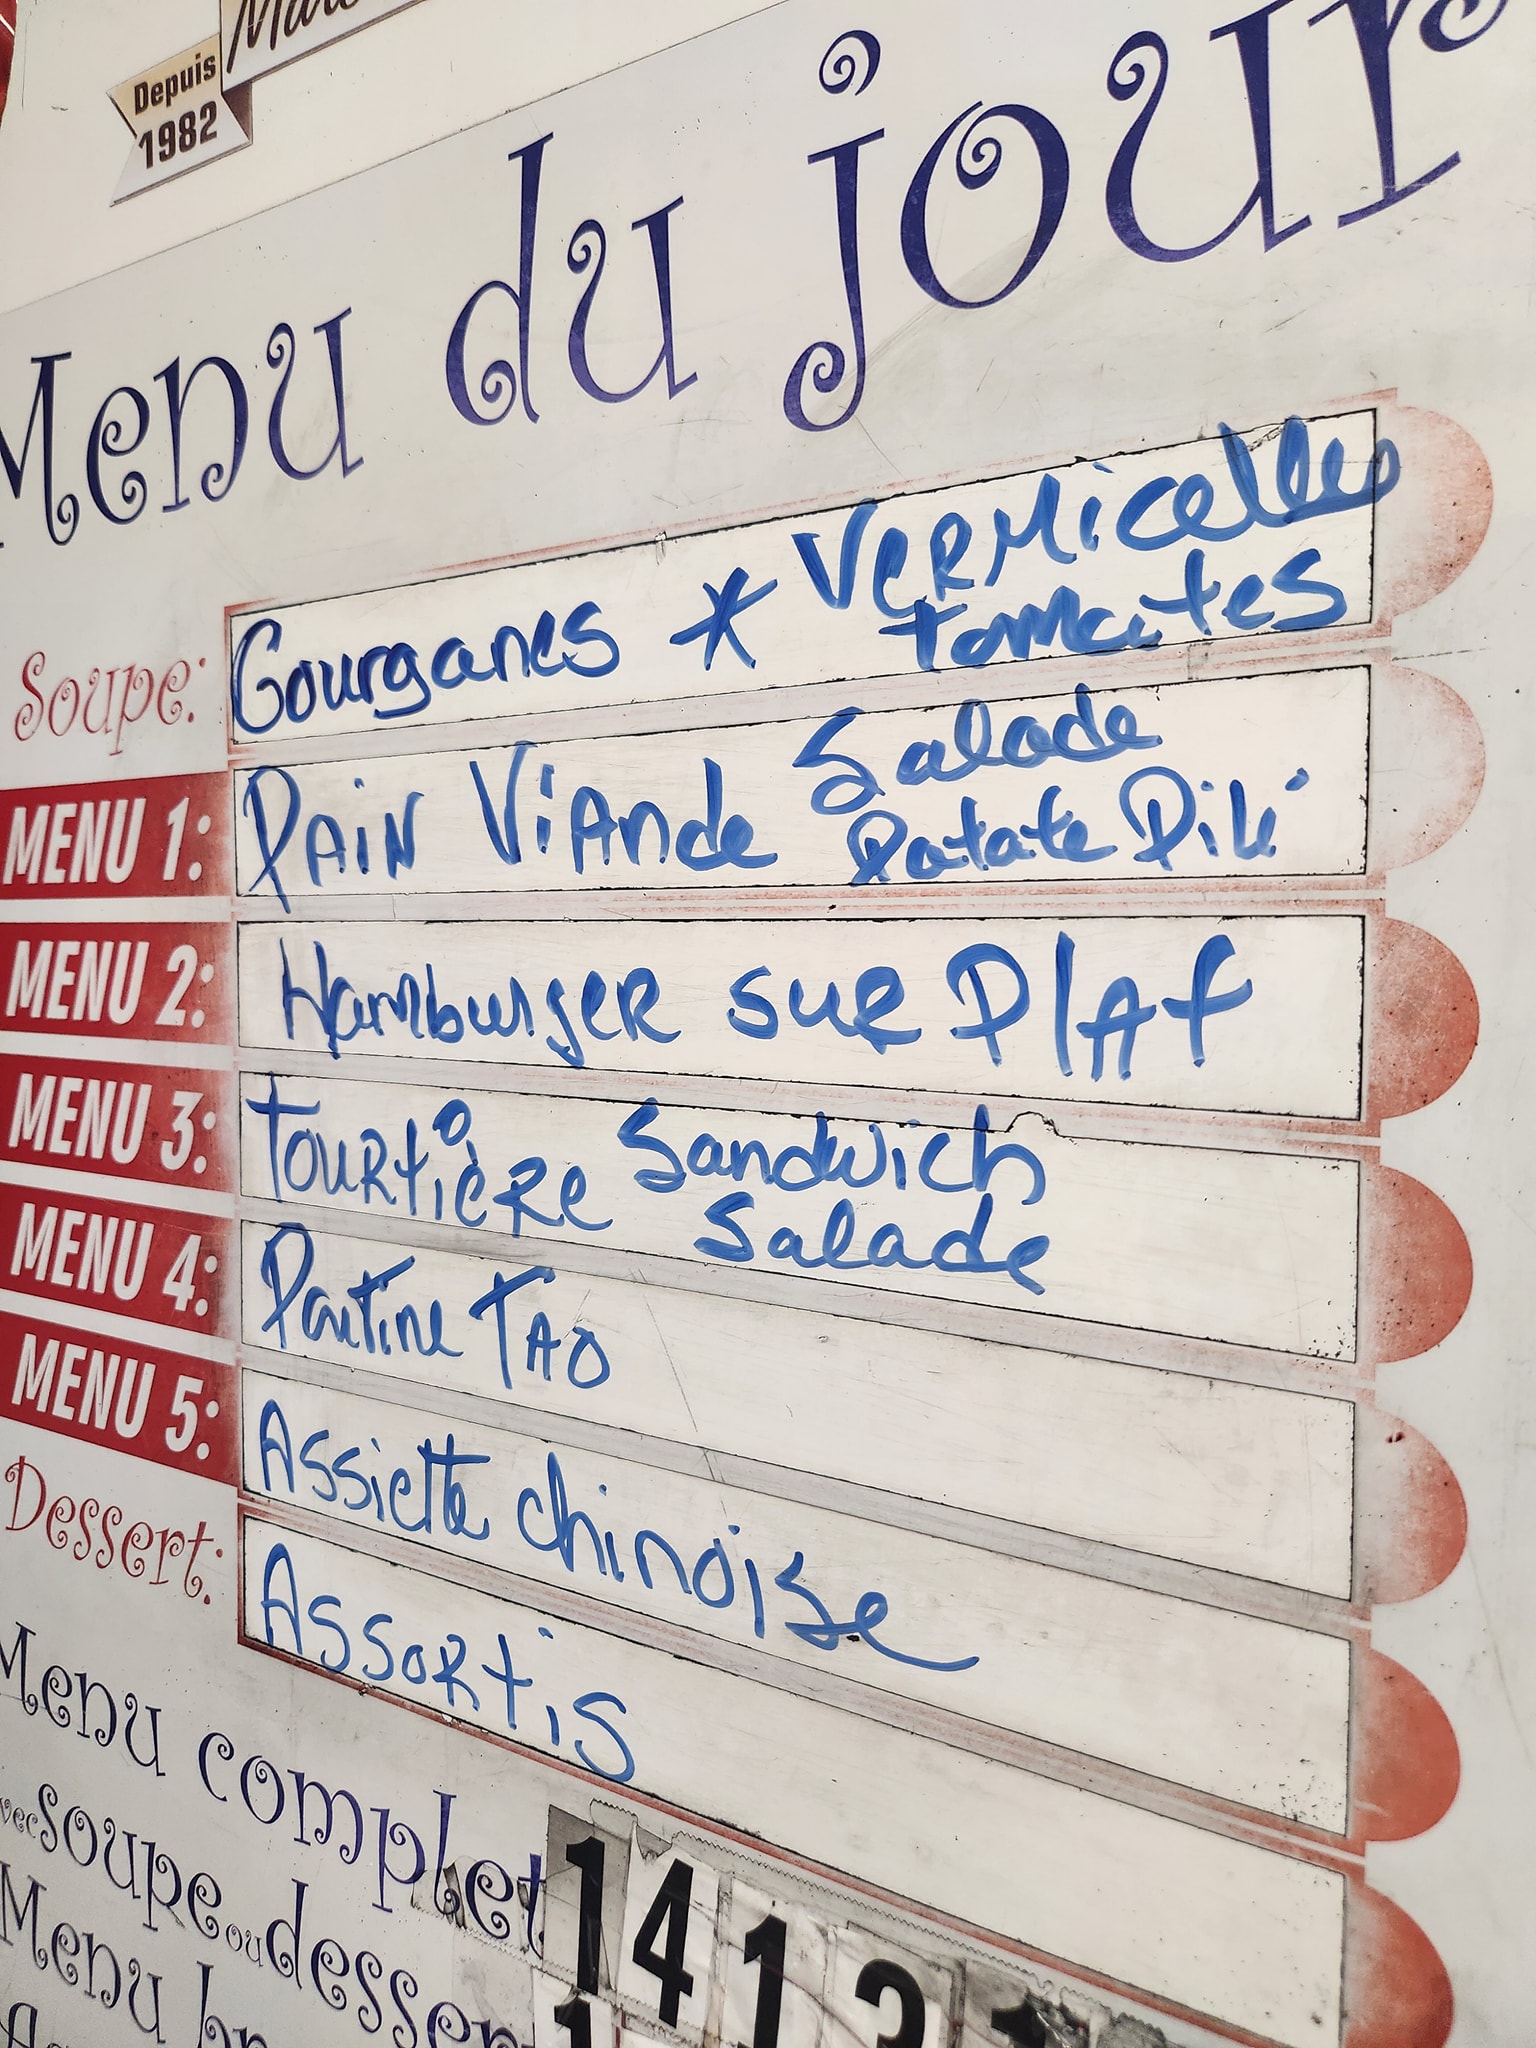 Depuis
1982
Menu du jour
Soupe: Gourganes * Vermicelles
tomates
MENU 1: Pain Viande Salade
Patate Pili
MENU 2: Hamburger sur Plat
MENU 3: Tourtière Sandwich
Salade
MENU 4: Poutine TAO
MENU 5: Assiette chinoise
Dessert: Assortis
Menu complet
avec soupe ou dessert
Menu